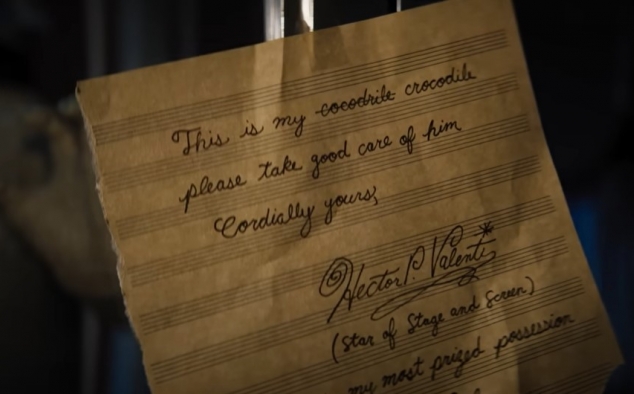 This is my ~~cocodrile~~ crocodile
please take good care of him
Cordially yours,
Hector P. Valenti*
(Star of Stage and Screen)
my most prized possession